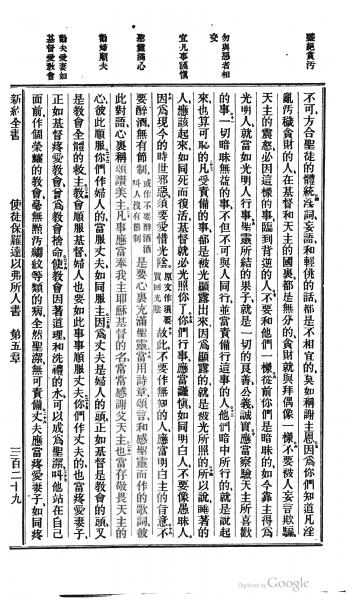 要絕貪汚
勿與愚者相交
宜凡事謹愼
應靈滿心
勸婦順夫
勸夫愛妻如基督愛敎會
不可、方合聖徒的體統、淫詞妄語和輕佻的話、都是不相宜的、莫如稱謝主恩、因爲你們知道凡淫
亂汚穢貪財的人在基督和天主的國裏都是無分的、貪財就與拜偶像一樣、不要被人妄言欺騙、
天主的震怒必因這樣的事臨到背逆的人、不要和他們一樣、從前你們是暗昧的、如今靠主得爲
光明人、就當如光明人行事、聖靈所結的果子、就是一切的良善公義誠實、應當察驗天主所喜歡
的事、一切暗昧無益的事、不但不可與人同行、並當責備行這事的人、他們暗中所行的、就是說起
來也算可恥的、凡受責備的事、都是被光顯露出來、因爲顯露的就是被光所照的、所以說、睡著的
人應該起來、如同死而復活、基督就必光照你了、你們行事應當謹愼、如同明白人、不要像愚昧人、
因爲現今的時世邪惡、須要愛惜光陰、原文作須要買回光陰 故此不要作無知的人、應當明白主的旨意、不
要醉酒、無有節制、或作不要醉酒酒叫人沒有節制 是要心裏充滿聖靈、當用詩章、頌言、和感聖靈而作的歌詞、彼
此對語、心裏稱頌讚美主、凡事應當奉我主耶穌基督的名、常常感謝父天主、也當存敬畏天主的
心、彼此順服、你們作婦人的、當服丈夫、如同服主、因爲丈夫是婦人的頭、正如基督是敎會的頭、又
是敎會全體的救主、敎會順服基督、婦人也要如此事事順服丈夫、你們作丈夫的、也當疼愛妻子、
正如基督疼愛敎會、曾爲敎會捨命、使敎會因著道理和洗禮的水、可以成爲聖潔、叫他站在自己
面前、作個榮耀的敎會、毫無黯汚縐紋等類的病、全然聖潔、無可責備、丈夫應當疼愛妻子、如同疼
新約全書 使徒保羅達以弗所人書 第五章 三百二十九
Digitized by Google